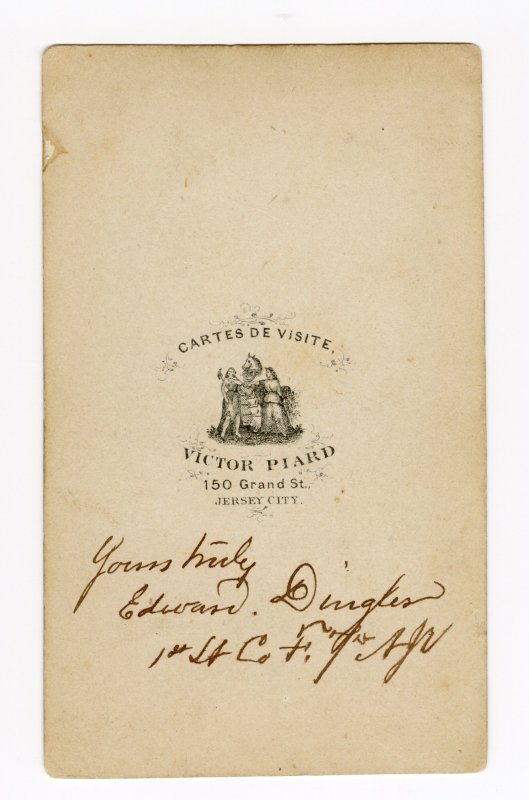 CARTES DE VISITE,
VICTOR PIARD
150 Grand St.,
JERSEY CITY.
Yours truly
Edward. Dingler
1st Lt Co F. NJV